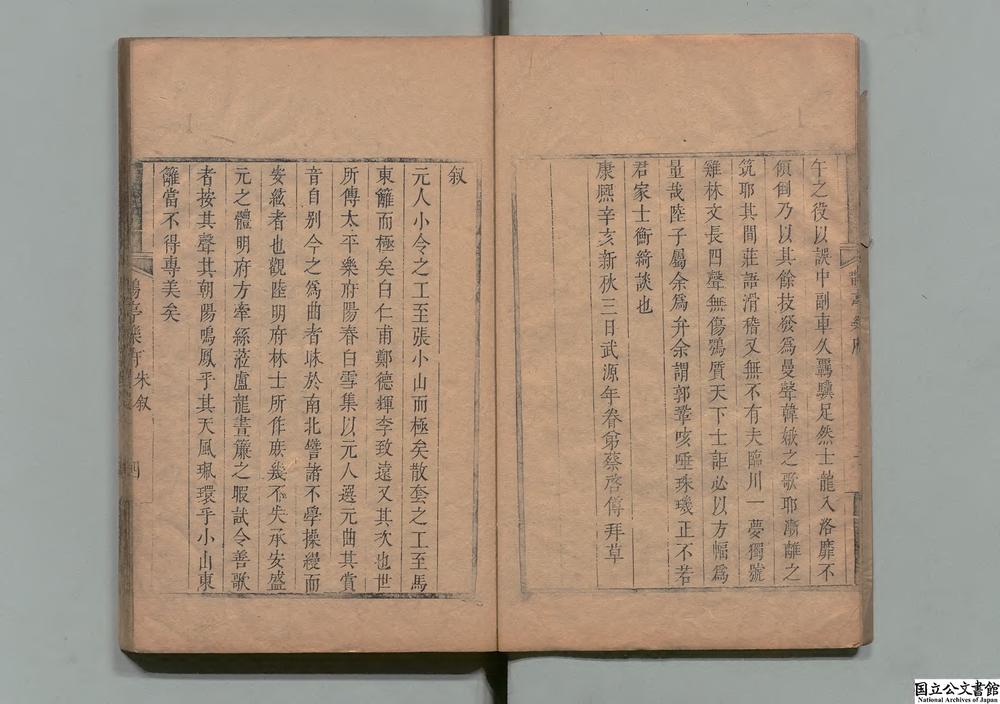 午之役以誤中副車久羈驥足然士龍入洛靡不
傾倒乃以其餘技發爲曼聲韓娥之歌耶漸離之
筑耶其間莊語滑稽又無不有夫臨川一夢獨號
雞林文長四聲無傷鶚質天下士詎必以方幅爲
量哉陸子屬余爲弁余謂郭鞏咳唾珠璣正不若
君家士衡綺談也
康熙辛亥新秋三日武源年眷弟蔡啓僔拜草
叙
元人小令之工至張小山而極矣散套之工至馬
東籬而極矣白仁甫鄭德輝李致遠又其次也世
所傳太平樂府陽春白雪集以元人選元曲其賞
音自别今之爲曲者昧於南北讐諸不學操縵而
安絃者也觀陸明府林士所作庶幾不失承安盛
元之體明府方牽絲蒞盧龍晝簾之暇試令善歌
者按其聲其朝陽鳴鳳乎其天風珮環乎小山東
籬當不得專美矣
亭樂府 朱叙 四
国立公文書館
National Archives of Japan